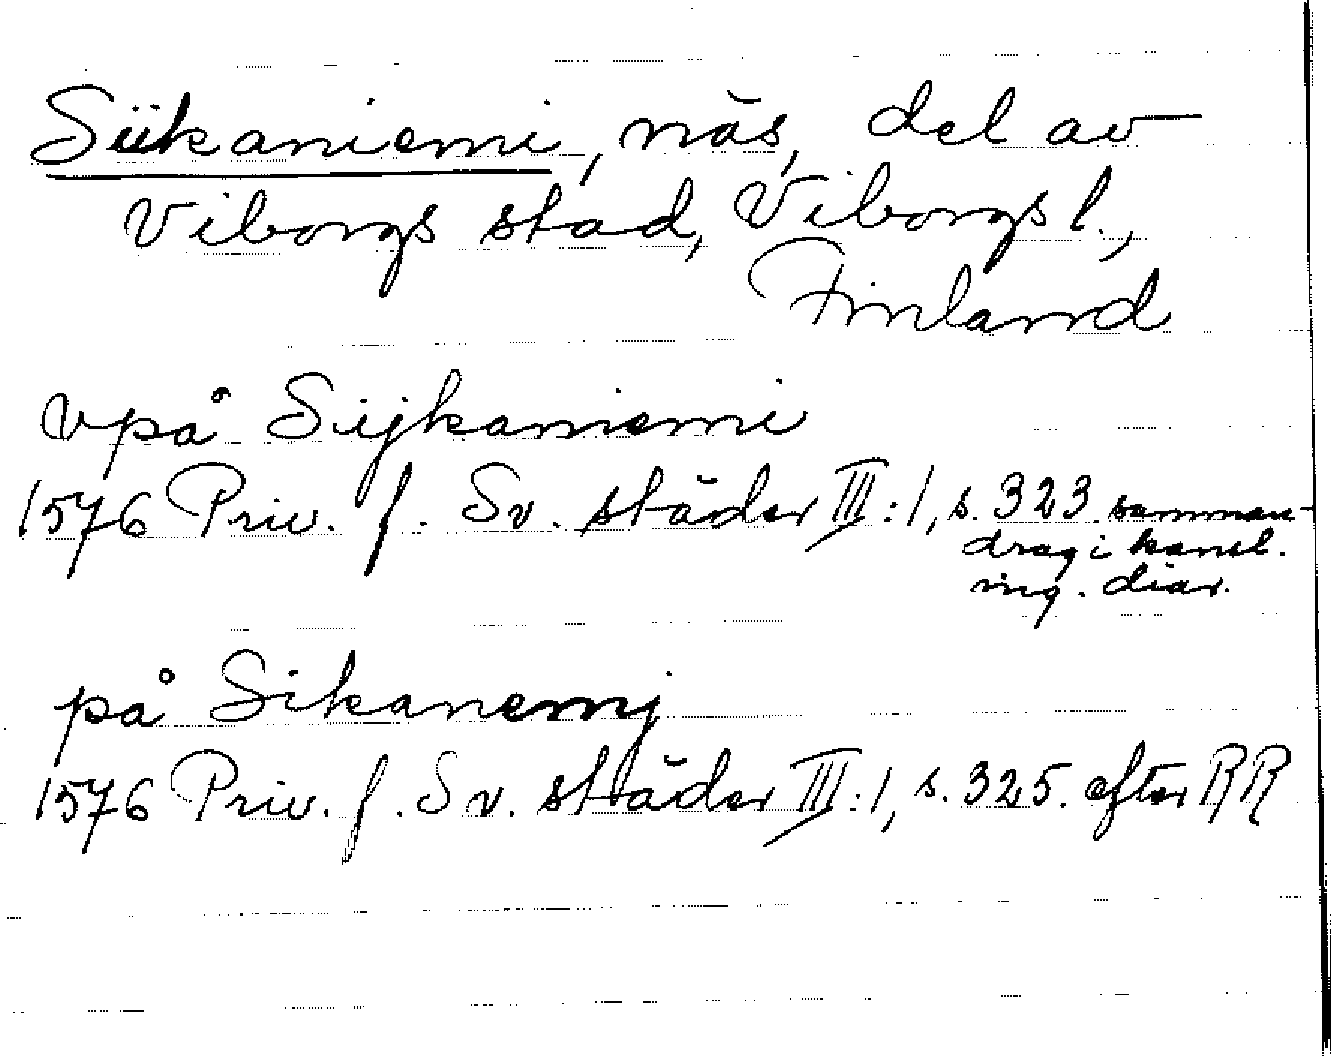 Siikaniemi, näs, del av
Viborgs stad, Viborgs l.,
Finland
vpå Sijkaniemi
1576 Priv. f. Sv. städer III:1, s. 323. samman-
drag i kansl.
ing. diar.
på Sikanemj
1576 Priv. f. Sv. städer III:1, s. 325. efter RR